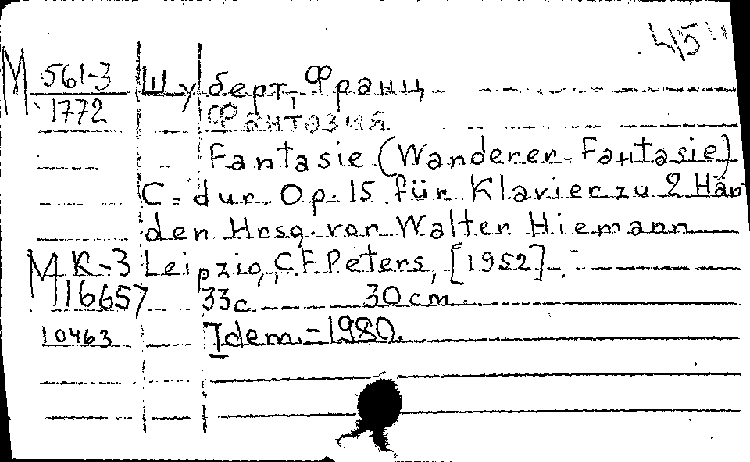 45"
М 561-3 Шуберт, Франц
1772 Фантазия
Fantasie (Wanderer-Fantasie)
C-dur. Op. 15 für Klavier zu 2 Hän
den Hrsg. von Walter Niemann
М К-3 Leipzig, C.F. Peters, [1952].
116657 33с 30 cm
10463 Idem.-1980.